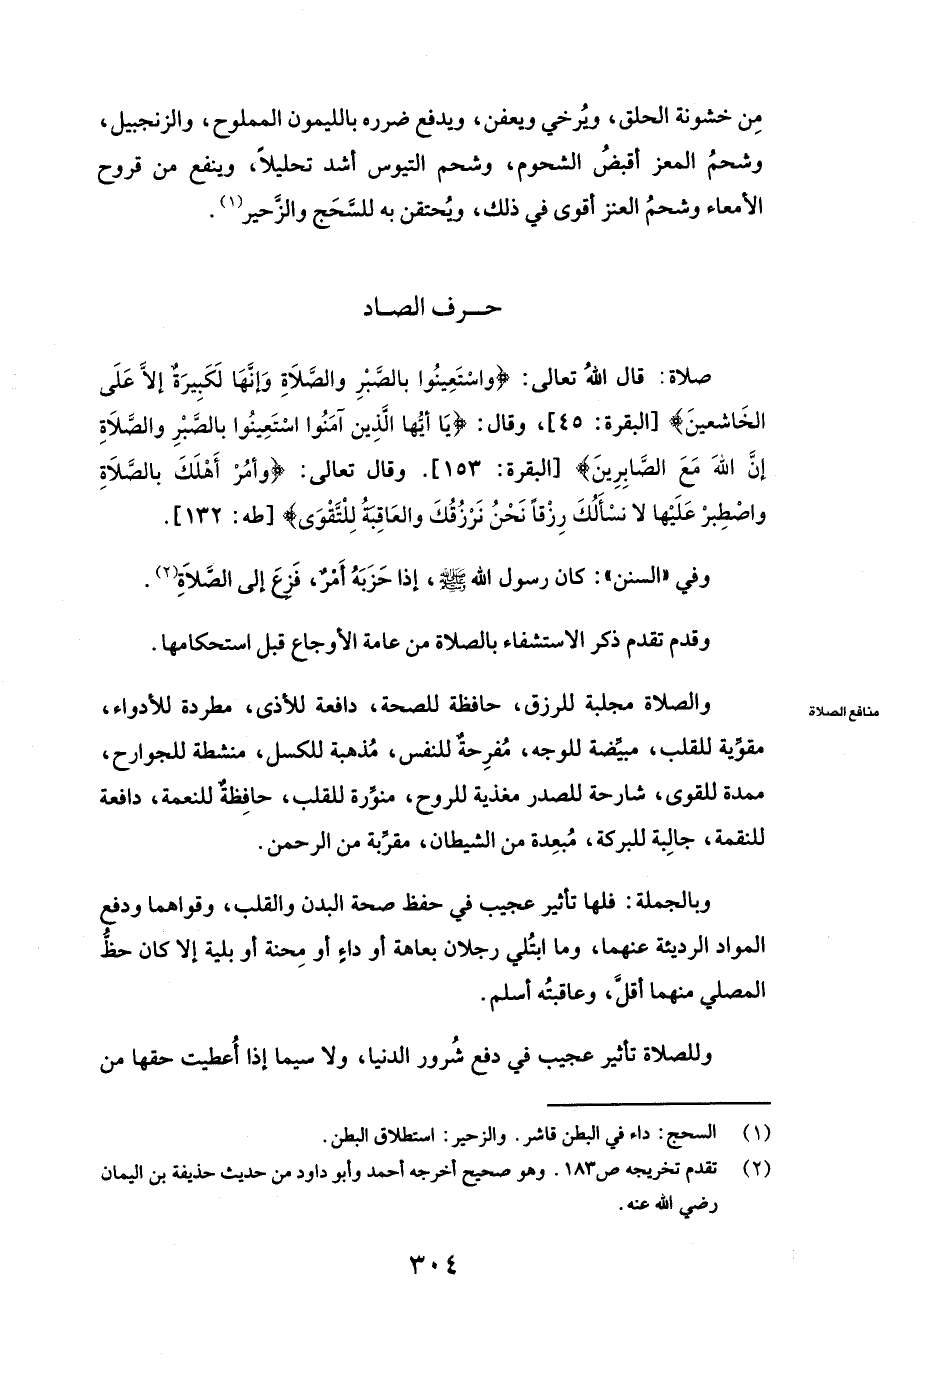 مِن خشونة الحلق، ويُرخي ويعفن، ويدفع ضرره بالليمون المملوح، والزنجبيل،
وشحمُ المعز أقبضُ الشحوم، وشحم التيوس أشد تحليلاً، وينفع من قروح
الأمعاء وشحمُ العنز أقوى في ذلك، ويُحتقن به للسَّحَج والزَّحير(١).
حــرف الصـاد
صلاة: قال اللهُ تعالى: ﴿واسْتَعِينُوا بالصَّبْرِ والصَّلَاةِ وَإِنَّهَا لَكَبِيرَةٌ إلاَّ عَلَى
الخَاشعينَ﴾ [البقرة: ٤٥]، وقال: ﴿يَا أيُّها الَّذِين آمَنُوا اسْتَعِينُوا بالصَّبْرِ والصَّلَاةِ
إنَّ اللهَ مَعَ الصَّابِرِينَ﴾ [البقرة: ١٥٣]. وقال تعالى: ﴿وأمُرْ أَهْلَكَ بالصَّلَاةِ
واصْطَبِرْ عَلَيْها لا نَسْأَلُكَ رِزْقاً نَحْنُ نَرْزُقُكَ والعَاقِبَةُ لِلْتَّقْوَى﴾ [طه: ١٣٢].
وفي «السنن»: كان رسول الله ﷺ، إذا حَزَبَهُ أَمْرٌ، فَزِعَ إلى الصَّلاَةِ(٢).
وقدم تقدم ذكر الاستشفاء بالصلاة من عامة الأوجاع قبل استحكامها.
والصلاة مجلبة للرزق، حافظة للصحة، دافعة للأذى، مطردة للأدواء،
منافع الصلاة
مقوِّية للقلب، مبيِّضة للوجه، مُفرِحةٌ للنفس، مُذهبة للكسل، منشطة للجوارح،
ممدة للقوى، شارحة للصدر مغذية للروح، منوِّرة للقلب، حافِظةٌ للنعمة، دافعة
للنقمة، جالِبة للبركة، مُبعِدة من الشيطان، مقرِّبة من الرحمن.
وبالجملة: فلها تأثير عجيب في حفظ صحة البدن والقلب، وقواهما ودفع
المواد الرديئة عنهما، وما ابتُلي رجلان بعاهة أو داءٍ أو مِحنة أو بلية إلا كان حظُّ
المصلي منهما أقلَّ، وعاقبتُه أسلم.
وللصلاة تأثير عجيب في دفع شُرور الدنيا، ولا سيما إذا أُعطيت حقها من
(١) السحج: داء في البطن قاشر. والزحير: استطلاق البطن.
(٢) تقدم تخريجه ص١٨٣. وهو صحيح أخرجه أحمد وأبو داود من حديث حذيفة بن اليمان
رضي الله عنه.
٣٠٤